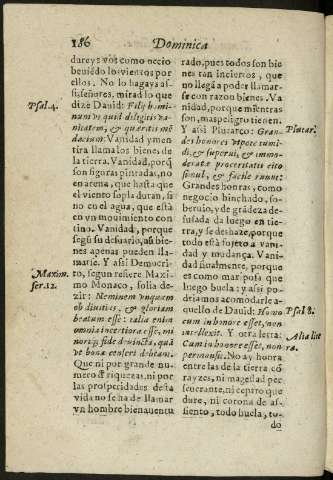 186 Dominica
dareys vos como necio
beuiẽdo lo vientos por
ellos. No lo hagays as-
si señores, mirad lo que
dize Dauid: Filij homi-
num vt quid diligitis va-
nitatem, & quæritis mẽ
dacium: Vanidad y men
tira llama los bienes de
la tierra. Vanidad, porq̃
son figuras pintadas, no
en arena, que hasta que
el viento sopla duran, si
no en el agua, que está
en vn mouimiento con
tino. Vanidad, porque
segũ su desuario, aũ bie-
nes apenas pueden lla-
marse. Y assi Democri-
to, segun refiere Maxi-
mo Monaco, solia de-
zir: Neminem vnquam
ob diuitias, & gloriam
beatum esse: talia enim
omnia incertiora esse, mi
noris; fide de vincta, quà
vt bona censeri debeant.
Que ni por grande nu-
mero de riquezas, ni por
las prosperidades desta
vida no se ha de llamar
vn hombre bienauentu
Psal. 4.
Maxim.
ser. 12.
rado, pues todos son bie
nes tan inciertos, que
no llegã a poder llamar-
se con razon bienes. Va
nidad, porque mientras
son, mas peligro tienen.
Y assi Plutarco: Gran-
des honores vtpote tumi-
di, & superui, & immo-
deratæ proceritatis cito
sonul, & facile ruunt:
Grandes honras, como
negocio hinchado, so-
beruio, y de grãdeza de-
susada da luego en tie-
rra, y se deshaze, porque
todo està sujeto a vani-
dad y mudança. Vani-
dad finalmente, porque
es como mariposa que
luego buela: y assi po-
driamos acomodarle a-
quello de Dauid: Homo
cum in honore esset, non
intellexit. Y otra letra:
Cum in honore esset, non
pernouit. No ay honra
entre las de la tierra cõ
rayzes, ni magestad per
seuerante, ni ceptro que
dure, ni corona de as-
siento, todo buela, to-
do
Plutar.
Psal 8.
Alia lit
ra.